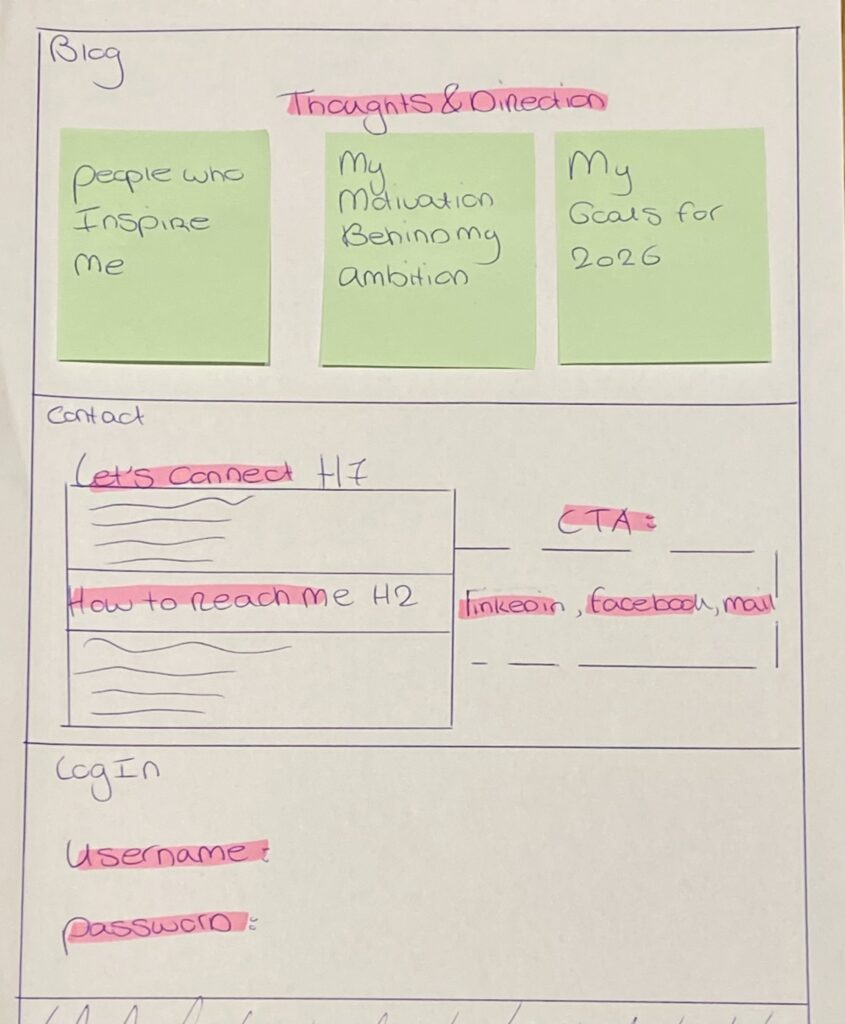 Blog
Thoughts & Direction
people who
Inspire
me
My
Motivation
Behind my
ambition
My
Goals for
2026
Contact
Let's connect H1
CTA:
How to reach me H2
linkedin, facebook, mail
Log In
Username:
password: